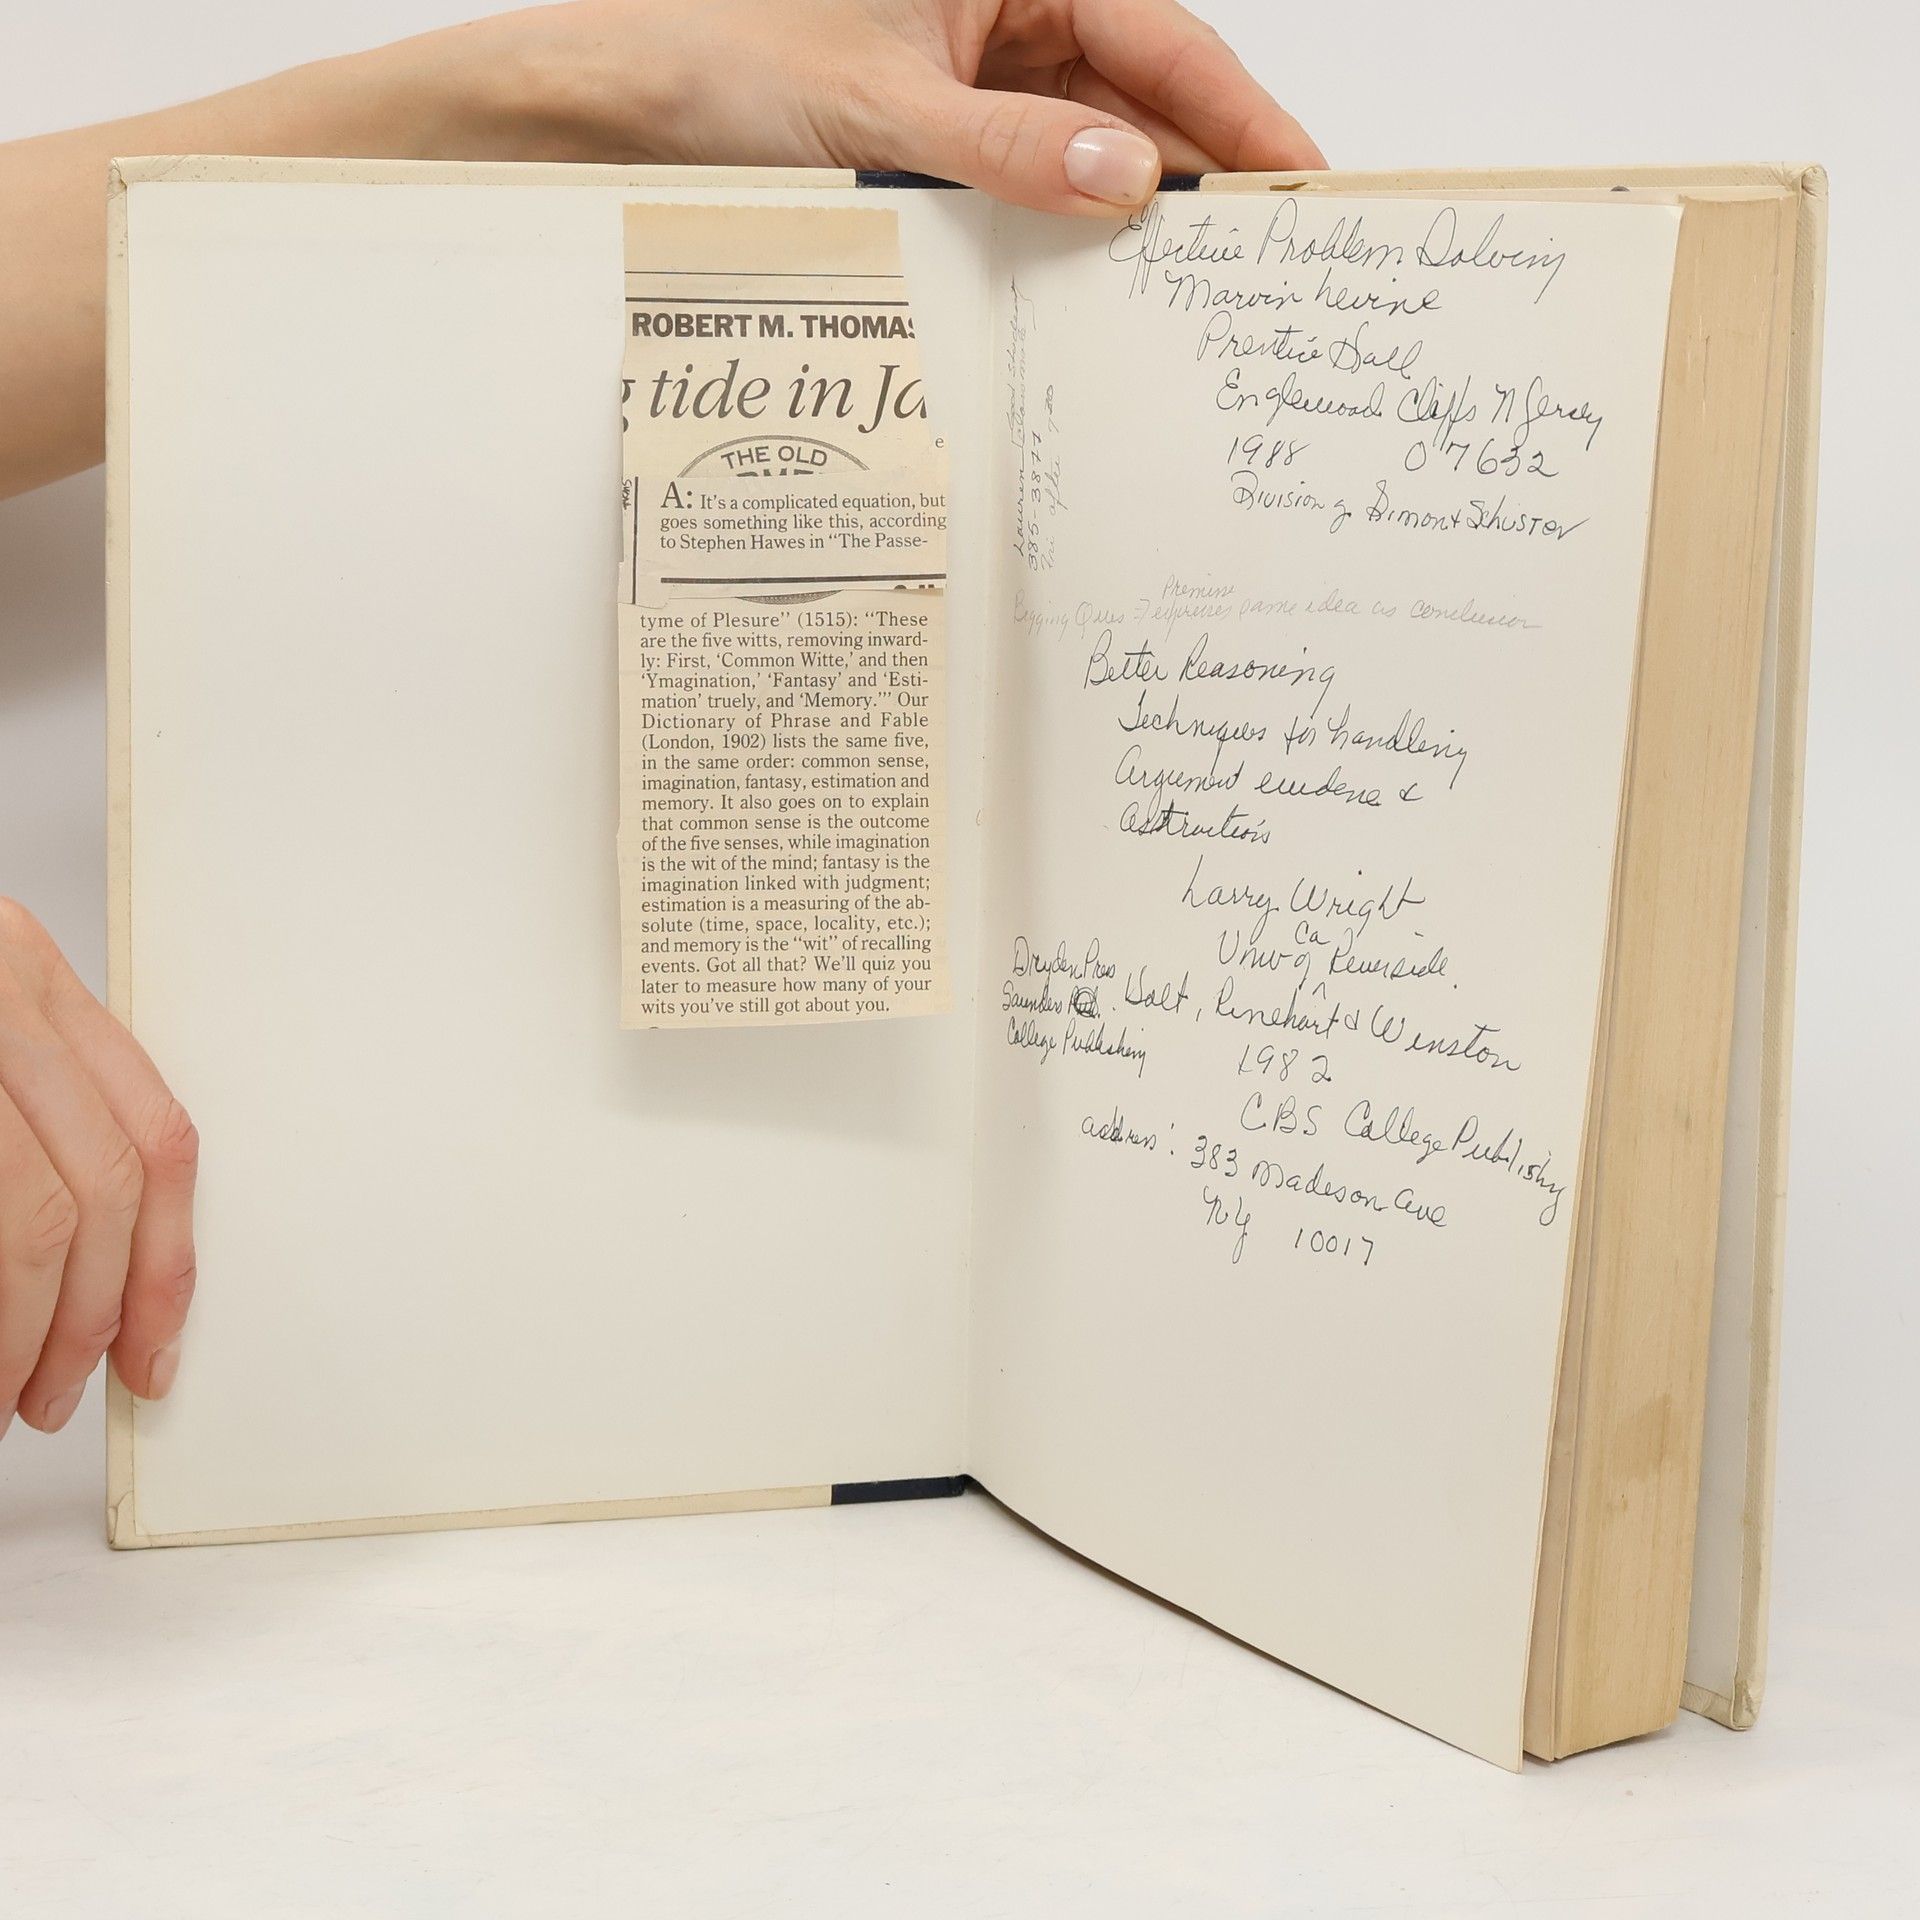 ROBERT M. THOMAS
g tide in Ja
THE OLD
e
A: It's a complicated equation, but
goes something like this, according
to Stephen Hawes in “The Passe-
tyme of Plesure” (1515): “These
are the five witts, removing inward-
ly: First, ‘Common Witte,’ and then
‘Ymagination,’ ‘Fantasy’ and ‘Esti-
mation’ truely, and ‘Memory.’” Our
Dictionary of Phrase and Fable
(London, 1902) lists the same five,
in the same order: common sense,
imagination, fantasy, estimation and
memory. It also goes on to explain
that common sense is the outcome
of the five senses, while imagination
is the wit of the mind; fantasy is the
imagination linked with judgment;
estimation is a measuring of the ab-
solute (time, space, locality, etc.);
and memory is the “wit” of recalling
events. Got all that? We'll quiz you
later to measure how many of your
wits you've still got about you.
Effective Problem Solving
Marvin Levine
Prentice Hall
Englewood Cliffs N Jersey
1988 07632
Division of Simon & Schuster
Lauren
385-3877
after 7:30
Premise
Begging Ques => expresses same idea as conclusion
Better Reasoning
Techniques for handling
Argument evidence &
Abstractions
Larry Wright
Ca
Univ of Riverside.
Dryden Press
Saunders
College Publishing
Holt, Rinehart & Winston
1982
CBS College Publishing
address: 383 Madison Ave
NY 10017